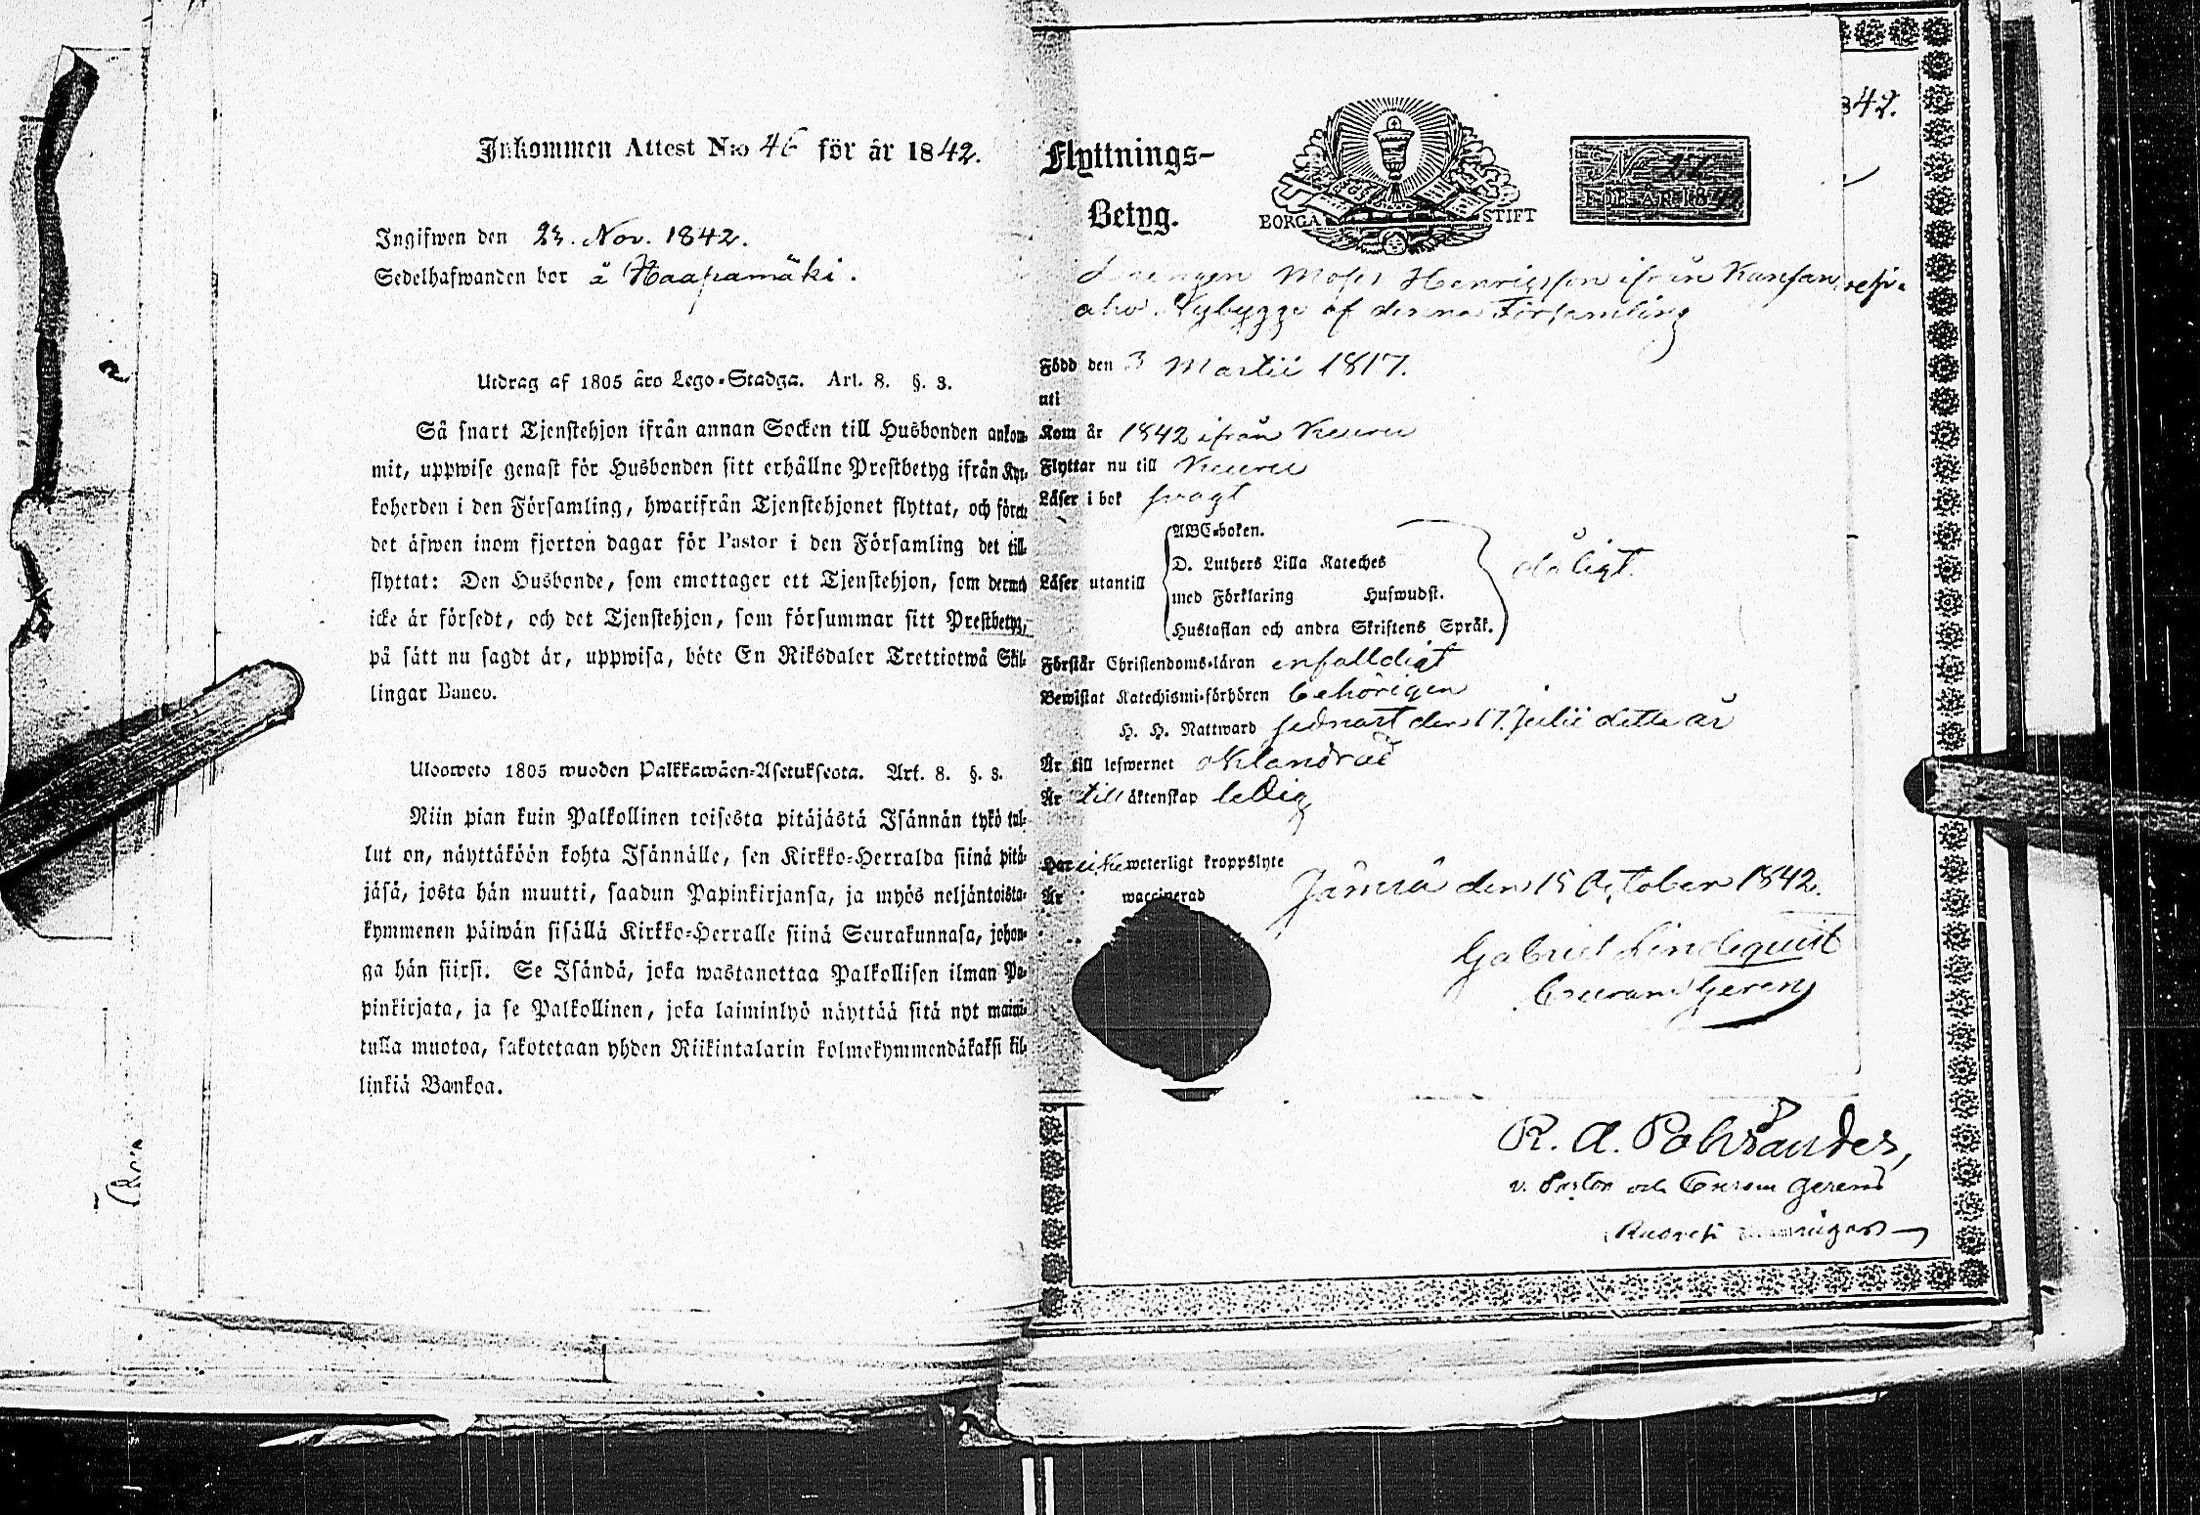 Inkommen Attest N:o 46 för år 1842.
Ingifwen den 23. Nov. 1842.
Sedelhafwanden bor å Haapamäki.
Utdrag af 1805 åro Lego-Stadga. Art. 8. §. 3.
Så snart Tjenstehjon ifrån annan Socken till Husbonden ankom-
mit, uppwise genast för Husbonden sitt erhållne Prestbetyg ifrån Kyr-
koherden i den Församling, hwarifrån Tjenstehjonet flyttat, och förete
det äfwen inom fjorton dagar för Pastor i den Församling det till-
flyttat: Den Husbonde, som emottager ett Tjenstehjon, som dermed
icke är försedt, och det Tjenstehjon, som försummar sitt Prestbetyg,
på sätt nu sagdt är, uppwisa, böte En Riksdaler Trettiotwå Skil-
lingar Banco.
Uloosweto 1805 wuoden Palkkawäen-Asetuksesta. Art. 8. §. 3.
Niin pian kuin Palkollinen toisesta pitäjästä Isännän tykö tul-
lut on, näyttäköön kohta Isännälle, sen Kirkko-Herralda siinä pitä-
jäsä, josta hän muutti, saadun Papinkirjansa, ja myös neljäntoista-
kymmenen päiwän sisällä Kirkko-Herralle siinä Seurakunnasa, johon-
ga hän siirsi. Se Isändä, joka wastanottaa Palkollisen ilman Pa-
pinkirjata, ja se Palkollinen, joka laiminlyö näyttää sitä nyt maini-
tulla muotoa, sakotetaan yhden Riikintalarin kolmekymmendäkaksi kil-
linkiä Bankoa.
Flyttnings-
Betyg.
BORGÅ STIFT
FÖR ÅR 18
842.
Moses Henricsson ifrån
Nybygge af denna Församling
Född den 3 Martii 1817.
uti
Kom år 1842 ifrån Keuru
Flyttar nu till Keuru
Läser i bok swagt
Läser utantill
ABC-boken.
D. Luthers Lilla Kateches
med Förklaring Hufwudst.
Hustaflan och andra Skriftens Språk.
dåligt.
Förstår Christendoms-läran enfalldigt
Bewistat Katechismi-förhören behörigen
H. H. Nattward sednast den 17. Julii detta år
Är till lefwernet oklandrad
Är till äktenskap ledig
Har icke weterligt kroppslyte
Är waccinerad
Jämsä den 15 October 1842.
Gabriel Lindequist
Curam Gerens
R. A. Pohlander,
v. Pastor och Curam gerens